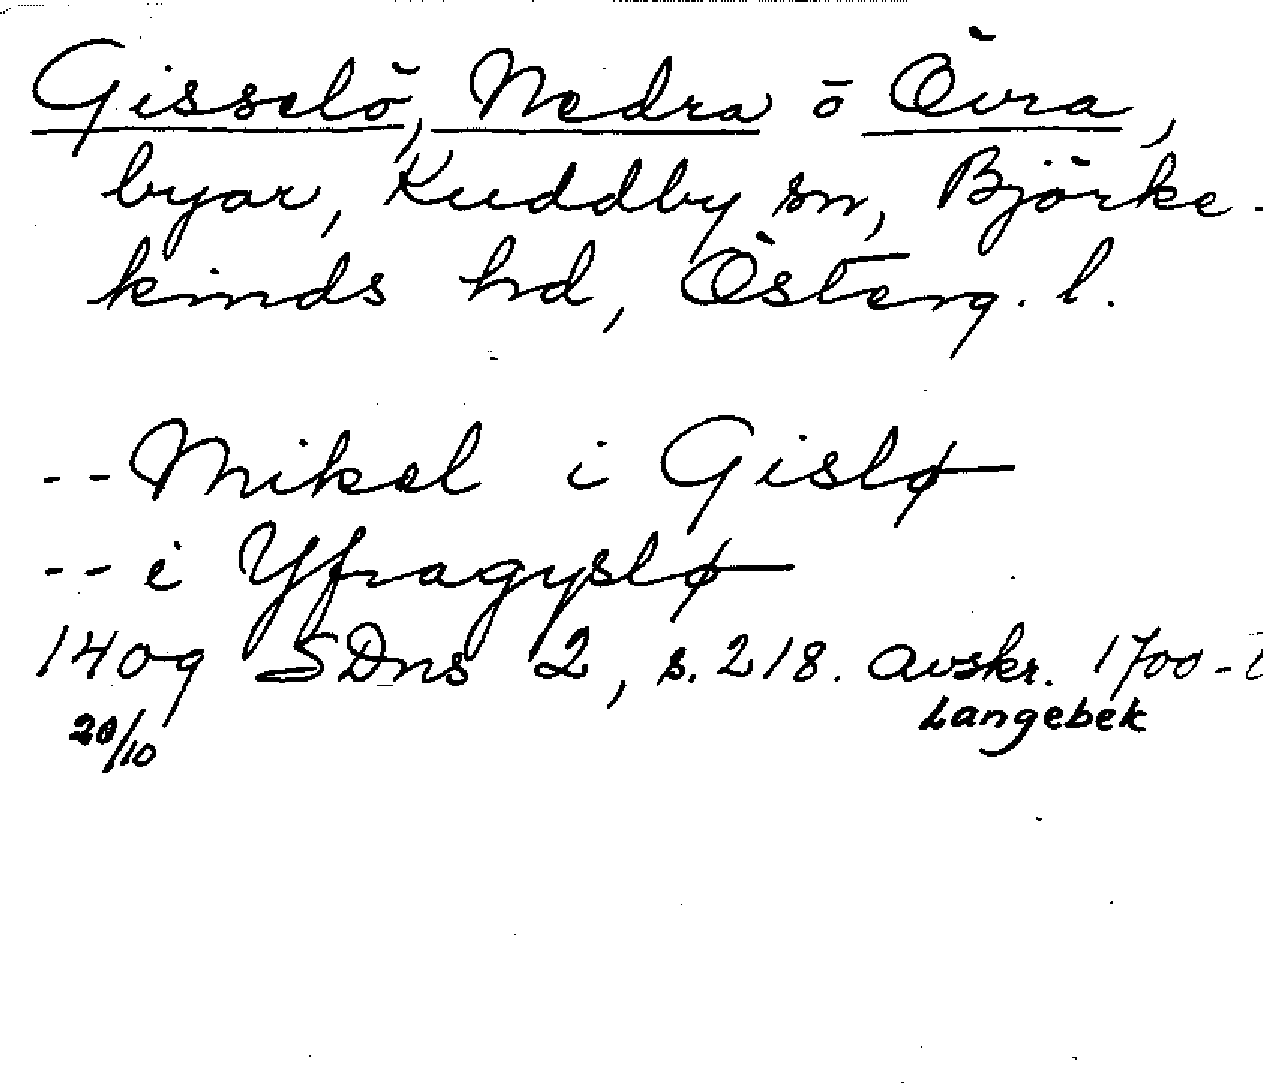 Gisselö, Nedra o Övra,
byar, Kuddby sn, Björke-
kinds hd, Österg. l.
--Mikel i Gislø
--i Yfragyslø
1409 SDns 2, s. 218. Avskr. 1700-t
20/10 Langebek